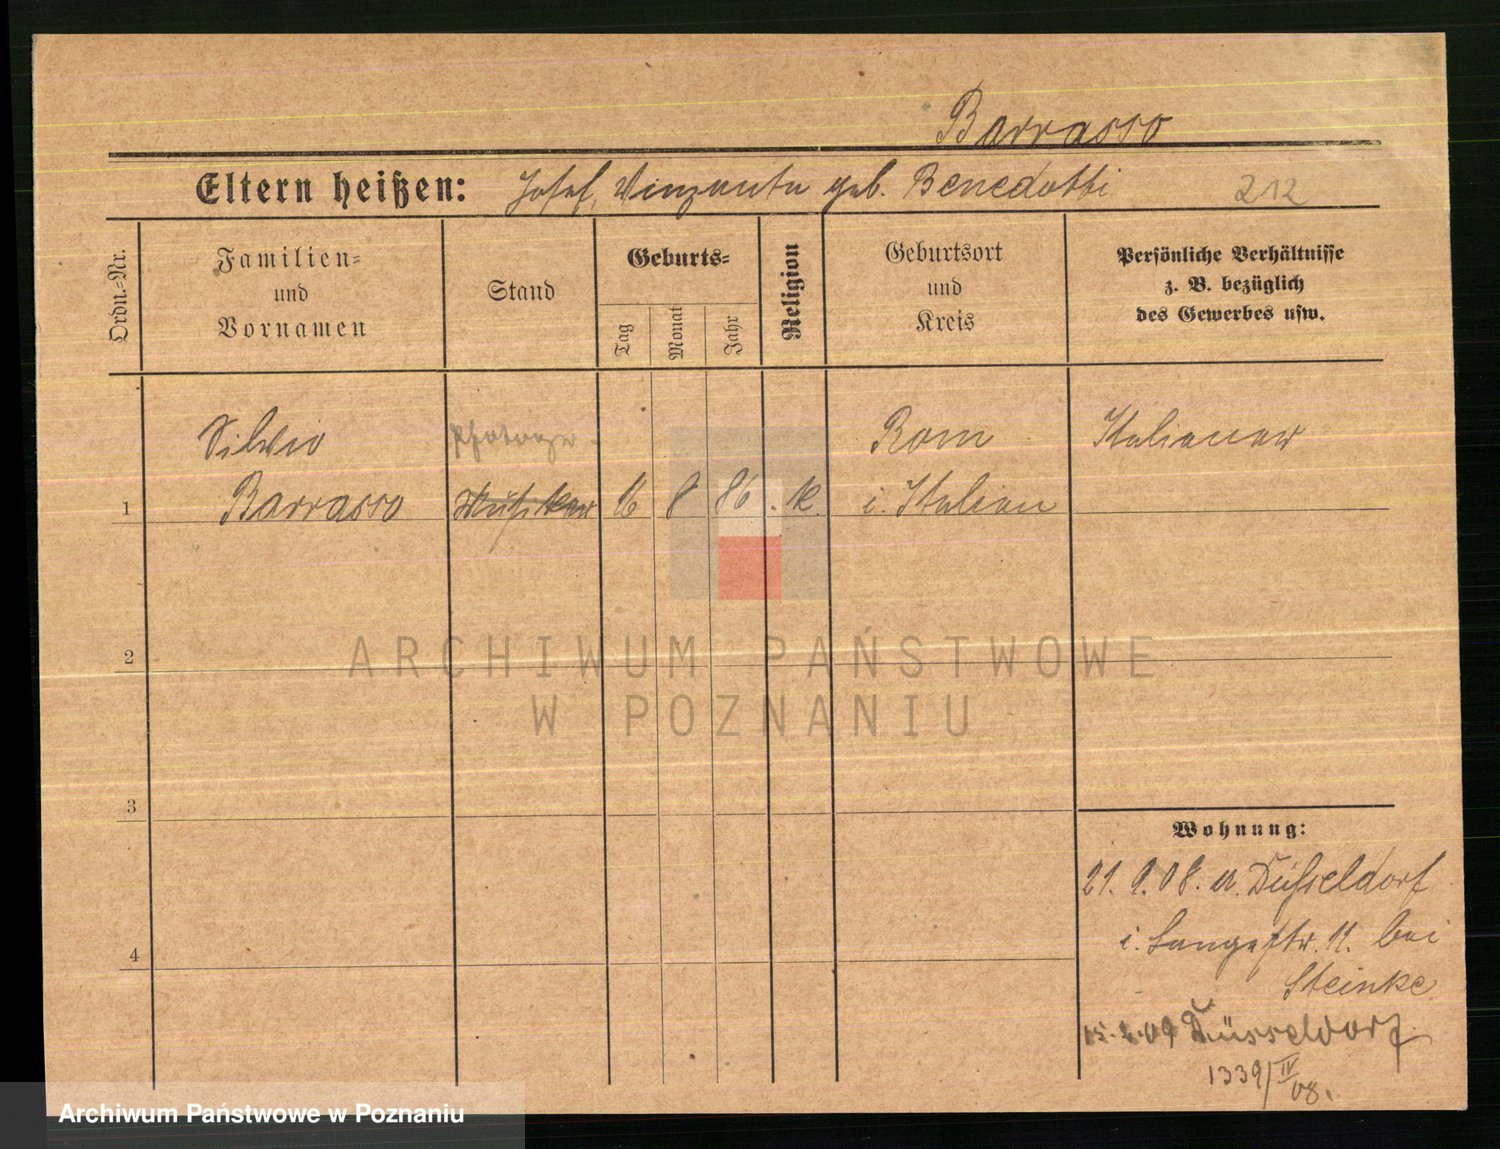 Barrasso
Eltern heißen: Josef, Vinzenta geb. Benedotti 212
Ordn.-Nr.
Familien- und Vornamen
Stand
Geburts-
Tag
Monat
Jahr
Religion
Geburtsort und Kreis
Persönliche Verhältnisse
z. B. bezüglich
des Gewerbes usw.
Silvio
Photogr.
Rom
Italiener
1
Barrasso
Musiker
16
8
86.
k.
i. Italien
2
ARCHIWUM PAŃSTWOWE
W POZNANIU
3
Wohnung:
21. 9. 08. a. Düsseldorf
i. Langestr. 11. bei
4
Steinke
Düsseldorf
1339/IV
08.
Archiwum Państwowe w Poznaniu